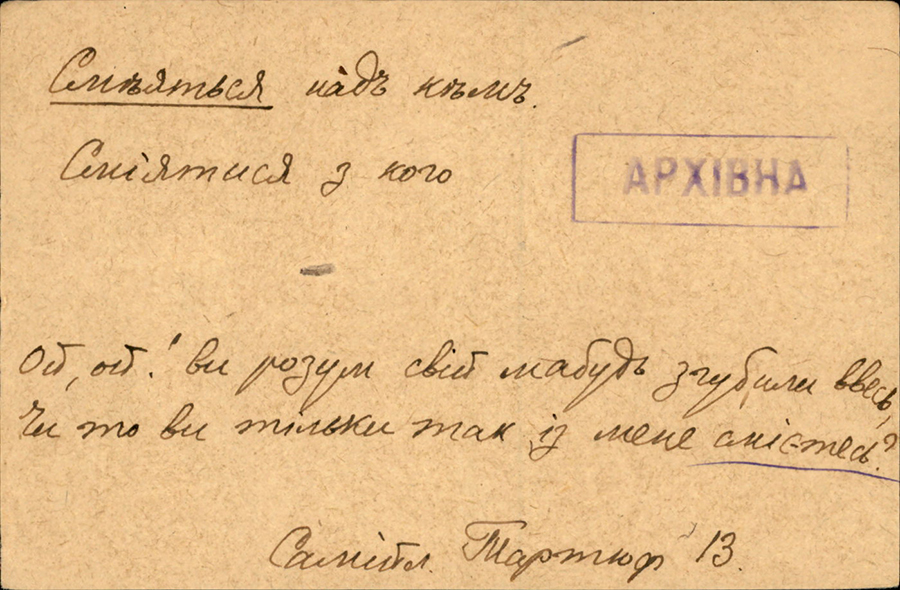 Смѣяться надъ кѣмъ.
Сміятися з кого
АРХІВНА
Ой, ой! ви розум свій мабудь згубили ввесь,
Чи то ви тільки так із мене смієтесь?
Самійл. Тартюф 13.